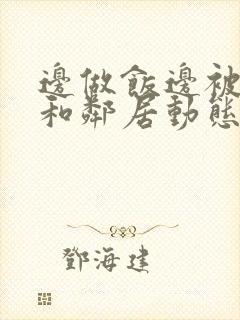 邊做飯邊被
和鄰居動態
鄧海建